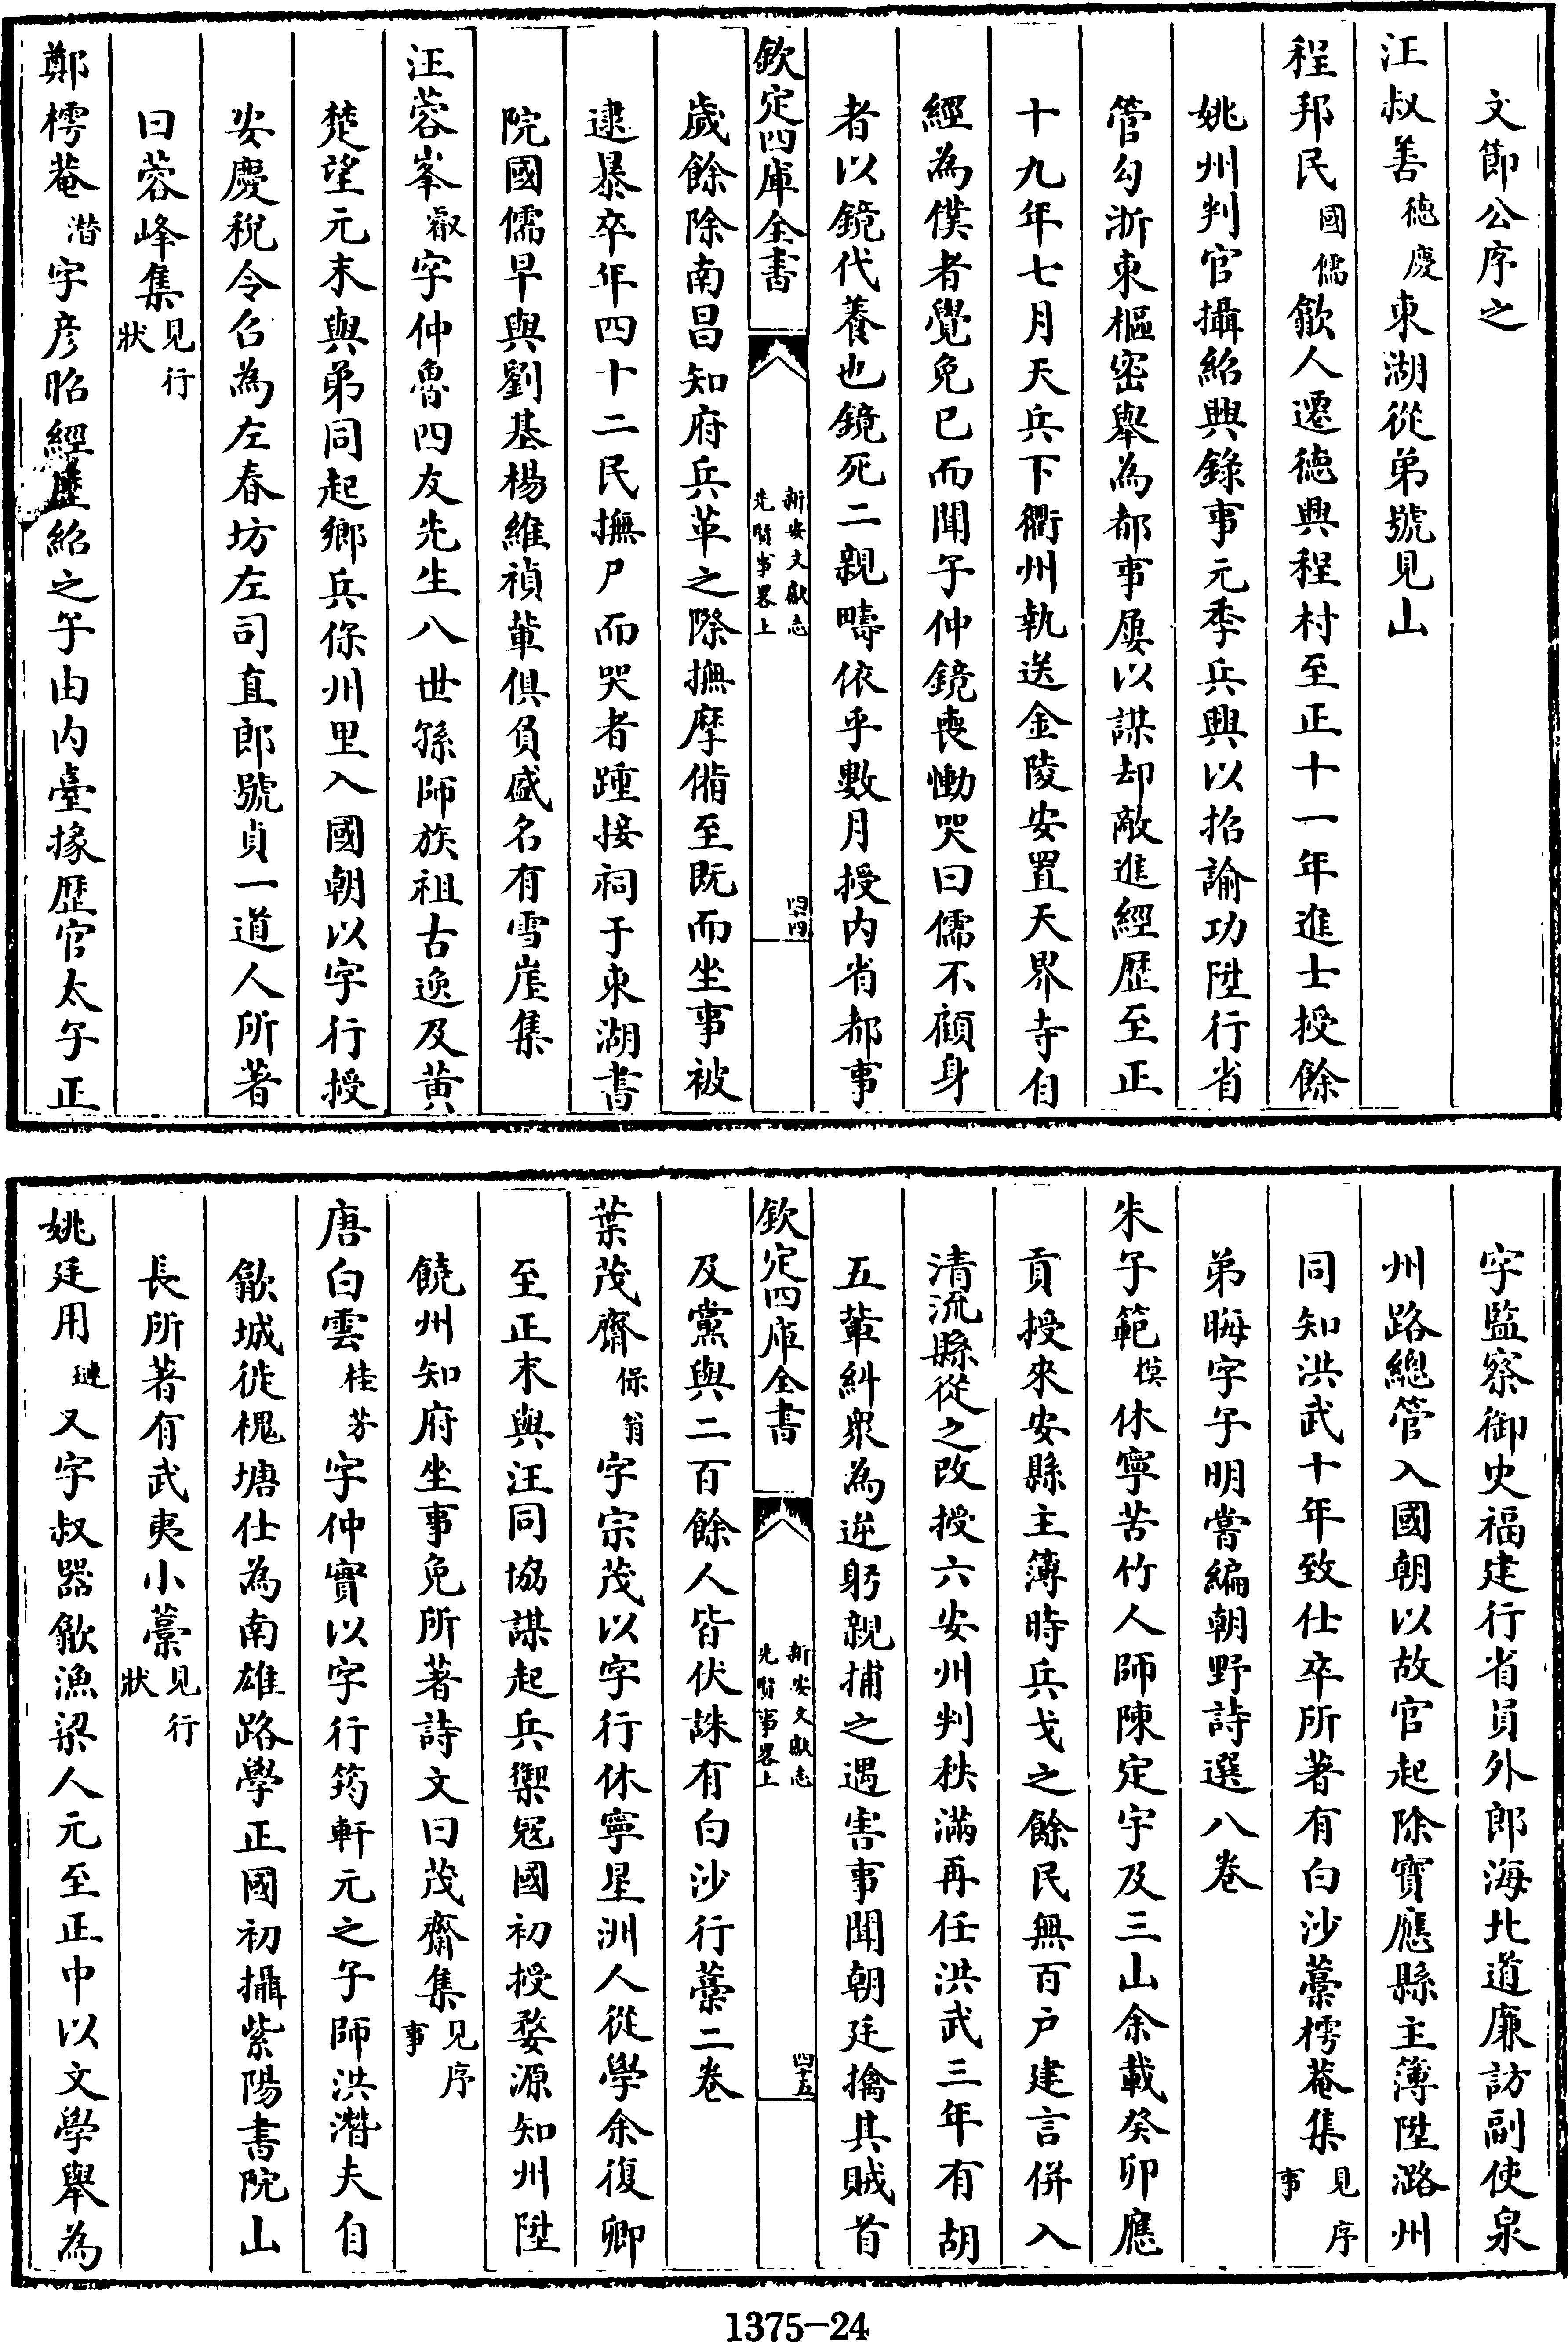 文節公序之
汪叔善德慶東湖從弟號見山
程邦民國儒歙人遷德興程村至正十一年進士授餘
姚州判官攝紹興錄事元季兵興以招諭功陞行省
管勾浙東樞密舉為都事屢以謀却敵進經歷至正
十九年七月天兵下衢州執送金陵安置天界寺自
經為僕者覺免已而聞子仲鏡喪慟哭曰儒不顧身
者以鏡代養也鏡死二親疇依乎數月授内省都事
欽定四庫全書
新安文獻志
先賢事畧上
四十四
歲餘除南昌知府兵革之際撫摩備至既而坐事被
逮暴卒年四十二民撫尸而哭者踵接祠于東湖書
院國儒早與劉基楊維禎輩俱負盛名有雪崖集
汪蓉峯叡字仲魯四友先生八世孫師族祖古逸及黄
楚望元末與弟同起鄉兵保州里入國朝以字行授
安慶稅令召為左春坊左司直郎號貞一道人所著
曰蓉峰集見行狀
鄭樗菴潛字彦昭經歷紹之子由内臺掾歷官太子正
字監察御史福建行省員外郎海北道廉訪副使泉
州路總管入國朝以故官起除寶應縣主簿陞潞州
同知洪武十年致仕卒所著有白沙藁樗菴集見序事
弟晦字子明嘗編朝野詩選八卷
朱子範模休寧苦竹人師陳定宇及三山余載癸卯應
貢授來安縣主簿時兵戈之餘民無百户建言併入
清流縣從之改授六安州判秩滿再任洪武三年有胡
五輩糾衆為逆躬親捕之遇害事聞朝廷擒其賊首
欽定四庫全書
新安文獻志
先賢事畧上
四十五
及黨與二百餘人皆伏誅有白沙行藁二卷
葉茂齋保翁字宗茂以字行休寧星洲人從學余復卿
至正末與汪同協謀起兵禦冦國初授婺源知州陞
饒州知府坐事免所著詩文曰茂齋集見序事
唐白雲桂芳字仲實以字行筠軒元之子師洪潛夫自
歙城徙槐塘仕為南雄路學正國初攝紫陽書院山
長所著有武夷小藁見行狀
姚廷用璉又字叔器歙漁梁人元至正中以文學舉為
1375-24